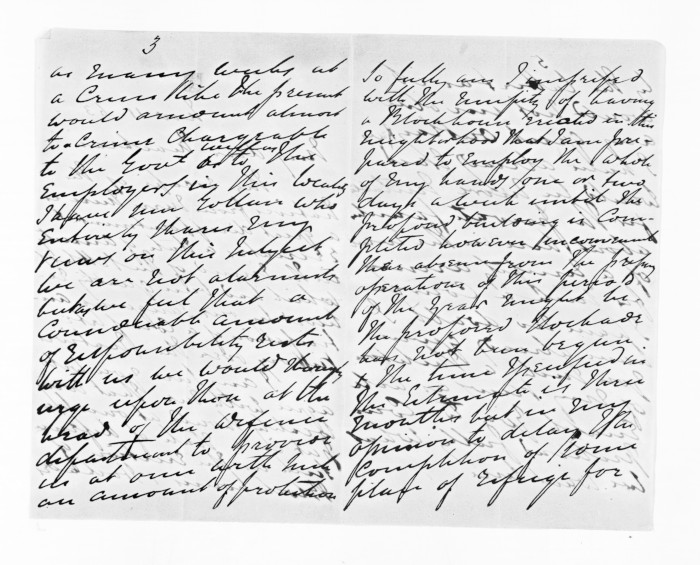 3
as many weeks at
a Crisis like the present
would amount almost
to a Crime Chargeable
to the Govt as well as to the
Employers in this locality
I have now
Entirely shares my
views on this subject
we are not alarmists
but we feel that a
Considerable amount
of responsibility rests
with us we would
urge upon those at the
head of the defence
department to provide
us at once with such
an amount of protection
So fully am I impressed
with the necessity of having
a Blockhouse Erected in this
neighborhood that I am pre-
pared to Employ the whole
of my hands one or two
days a week until the
proposed building is Com-
pleted however inconvenient
their absence from the
operations at this period
of the year might be
The proposed Stockade
has not been begun
the time specified in
the Estimate is three
months but in my
opinion to delay the
Completion of Some
place of refuge for